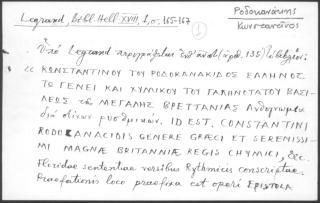 Legrand, Bibl. Hell. XVIII, 1, σ. 165-167
①
Ροδοκανάκης
Κωνσταντῖνος
Ὑπὸ Legrand περιγράφεται ὑπ' ἀριθ. 135)
« ΚΩΝΣΤΑΝΤΙΝΟΥ ΤΟΥ ΡΟΔΟΚΑΝΑΚΙΔΟΣ ΕΛΛΗΝΟΣ
ΤΟ ΓΕΝΕΙ ΚΑΙ ΧΥΜΙΚΟΥ ΤΟΥ ΓΑΛΗΝΟΤΑΤΟΥ ΒΑΣΙ-
ΛΕΩΣ τῆς ΜΕΓΑΛΗΣ ΒΡΕΤΤΑΝΙΑΣ
διὰ στίχων ῥυθμικῶν. ID EST, CONSTANTINI
RODOCANACIDIS GENERE GRÆCI ET SERENISSI-
MI MAGNÆ BRITANNIÆ REGIS CHYMICI, &c.
Floridae sententiae versibus Rythmicis conscriptae.
Praefationis loco praefixa est operi EPISTOLA